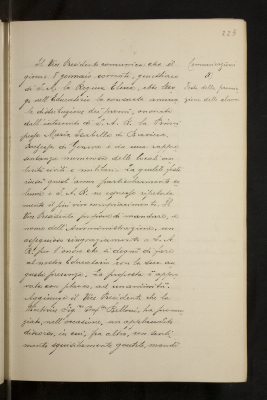 223
Il Vice Presidente comunica che il
giorno 8 gennaio corrente, genetliaco
di S. M. la Regina Elena, ebbe luo-
go nell'Educatorio la consueta annua-
le distribuzione dei premi, onorata
dall'intervento di S. A. R. la Princi-
pessa Maria Isabella di Baviera,
Duchessa di Genova e da una rappre-
sentanza numerosa delle locali au-
torità civili e militari. La gentile festa
riuscì quest'anno particolarmente so-
lenne e S. A. R. ne espresse ripetuta-
mente il più vivo compiacimento. Il
Vice Presidente propone di mandare, a
nome dell'Amministrazione, un
ringraziamento a S. A.
R. per l'onore che si degnò di fare
al nostro Educatorio con la sua au-
gusta presenza. La proposta è appro-
vata con plauso, ad unanimità.
Aggiunge il Vice Presidente che la
Sig.na Bellini, ha pronun-
ziato, nell'occasione, un applaudito
discorso, in cui, fra altro, con senti-
mento squisitamente gentile, mandò
Comunicazioni
Festa della premia-
zione delle alunne